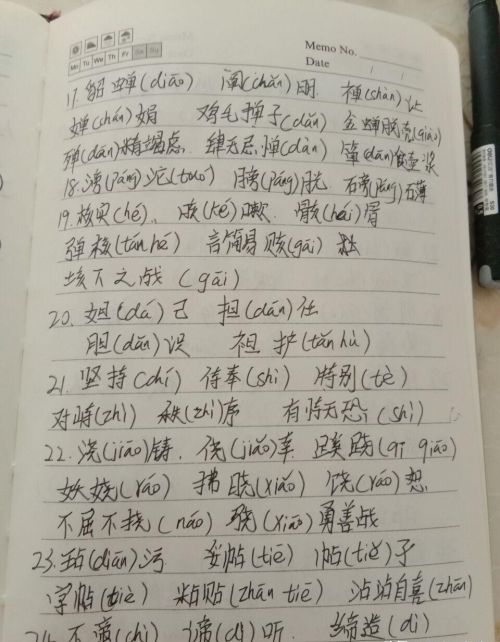 Memo No.
Mo Tu We Th Fr Sa Su
Date / /
17. 貂蝉(diāo) 阐(chǎn)明 禅(shàn)让
婵(chán)娟 鸡毛掸子(dǎn) 金蝉脱壳(qiào)
殚(dān)精竭虑. 肆无忌惮(dàn) 箪(dān)食壶浆
18. 滂(pāng)沱(tuó) 膀(páng)胱. 石磅(páng)礴
19. 核实(hé). 咳(ké)嗽. 骸(hái)骨
弹核(tán hé) 言简易赅(gāi)
垓下之战 (gāi)
20. 妲(dá)己 担(dān)任
胆(dǎn)识 袒护(tǎn hù)
21. 坚持(chí) 侍奉(shì) 特别(tè)
对峙(zhì) 秩(zhì)序 有恃无恐(shì)
22. 浇(jiāo)铸. 侥(jiǎo)幸. 蹊跷(qī qiāo)
妖娆(ráo) 拂晓(xiǎo) 饶(ráo)恕.
不屈不挠(náo) 骁(xiāo)勇善战
23. 玷(diàn)污 妥帖(tiē) 帖(tiě)子
字帖(tiè) 粘贴(zhān tiē) 沾沾自喜(zhān)
24. 不啻(chì) 谛(dì)听. 缔造(dì)